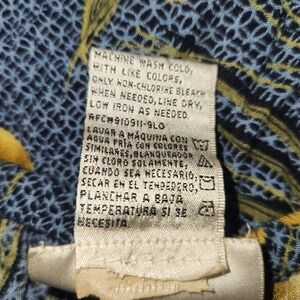 MACHINE WASH COLD,
WITH LIKE COLORS,
ONLY NON-CHLORINE BLEACH
WHEN NEEDED, LINE DRY,
LOW IRON AS NEEDED
AFCW910911-9LO
LAVAR A MÁQUINA CON
AGUA FRIA CON COLORES
SIMILARES, BLANQUEADOR
SIN CLORO SOLAMENTE,
CUANDO SEA NECESARIO,
SECAR EN EL TENDEDERO,
PLANCHAR A BAJA
TEMPERATURA SI SE
NECESITA